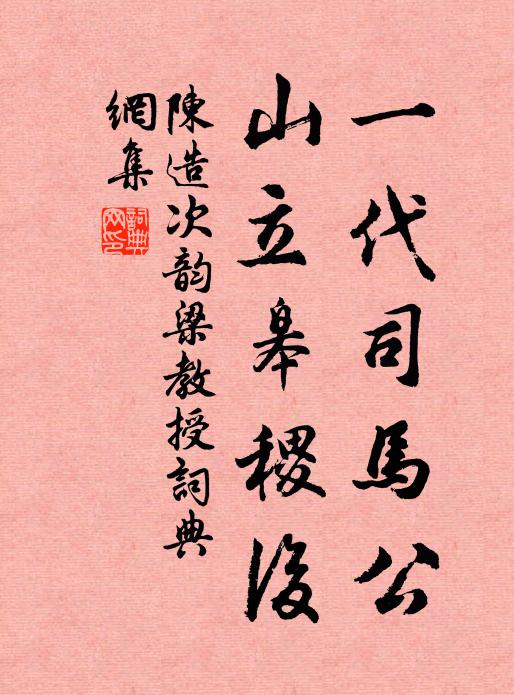 一代司馬公
山立皋稷後
陳造次韵梁教授詞典
網集
詞典網印